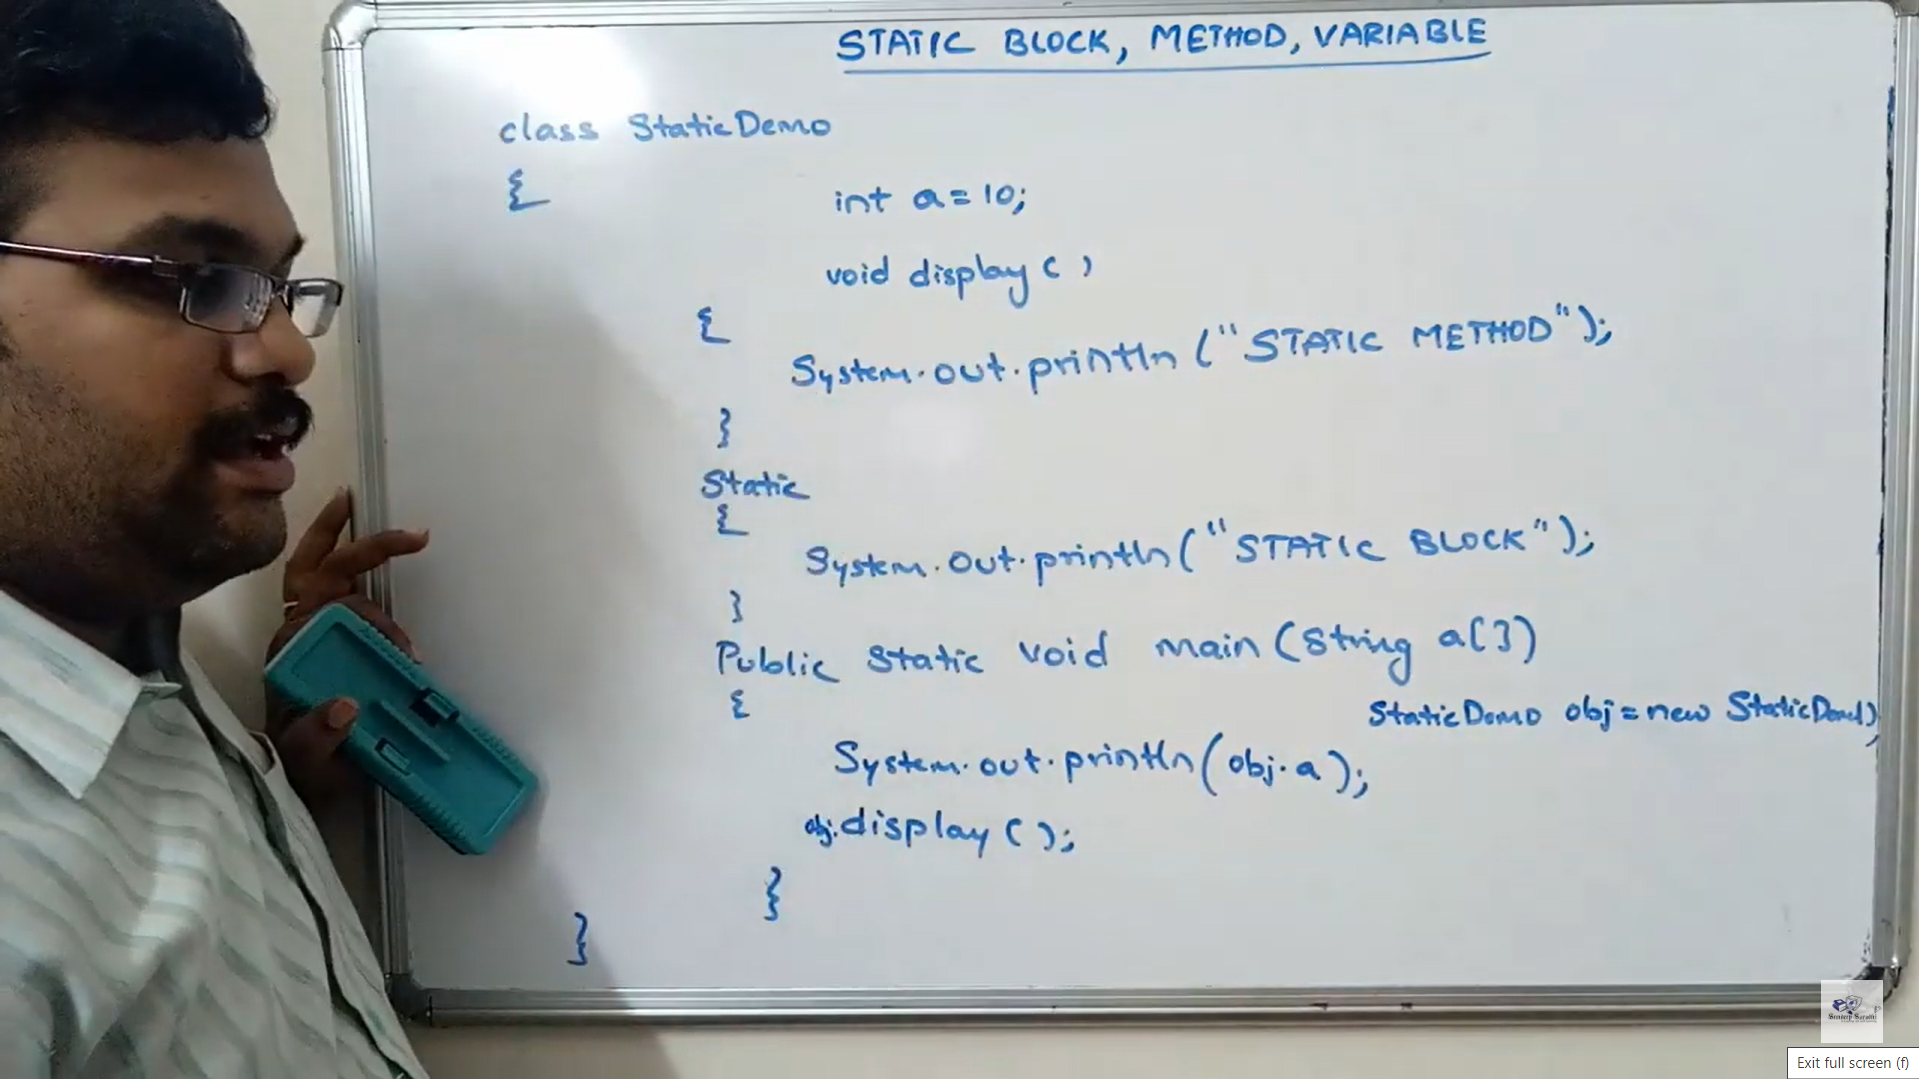 STATIC BLOCK, METHOD, VARIABLE
class StaticDemo
{
int a=10;
void display()
{
System.out.println("STATIC METHOD");
}
Static
{
System.out.println("STATIC BLOCK");
}
Public static void main(String a[])
{
StaticDemo obj=new StaticDemo();
System.out.println(obj.a);
obj.display();
}
}
Exit full screen (f)